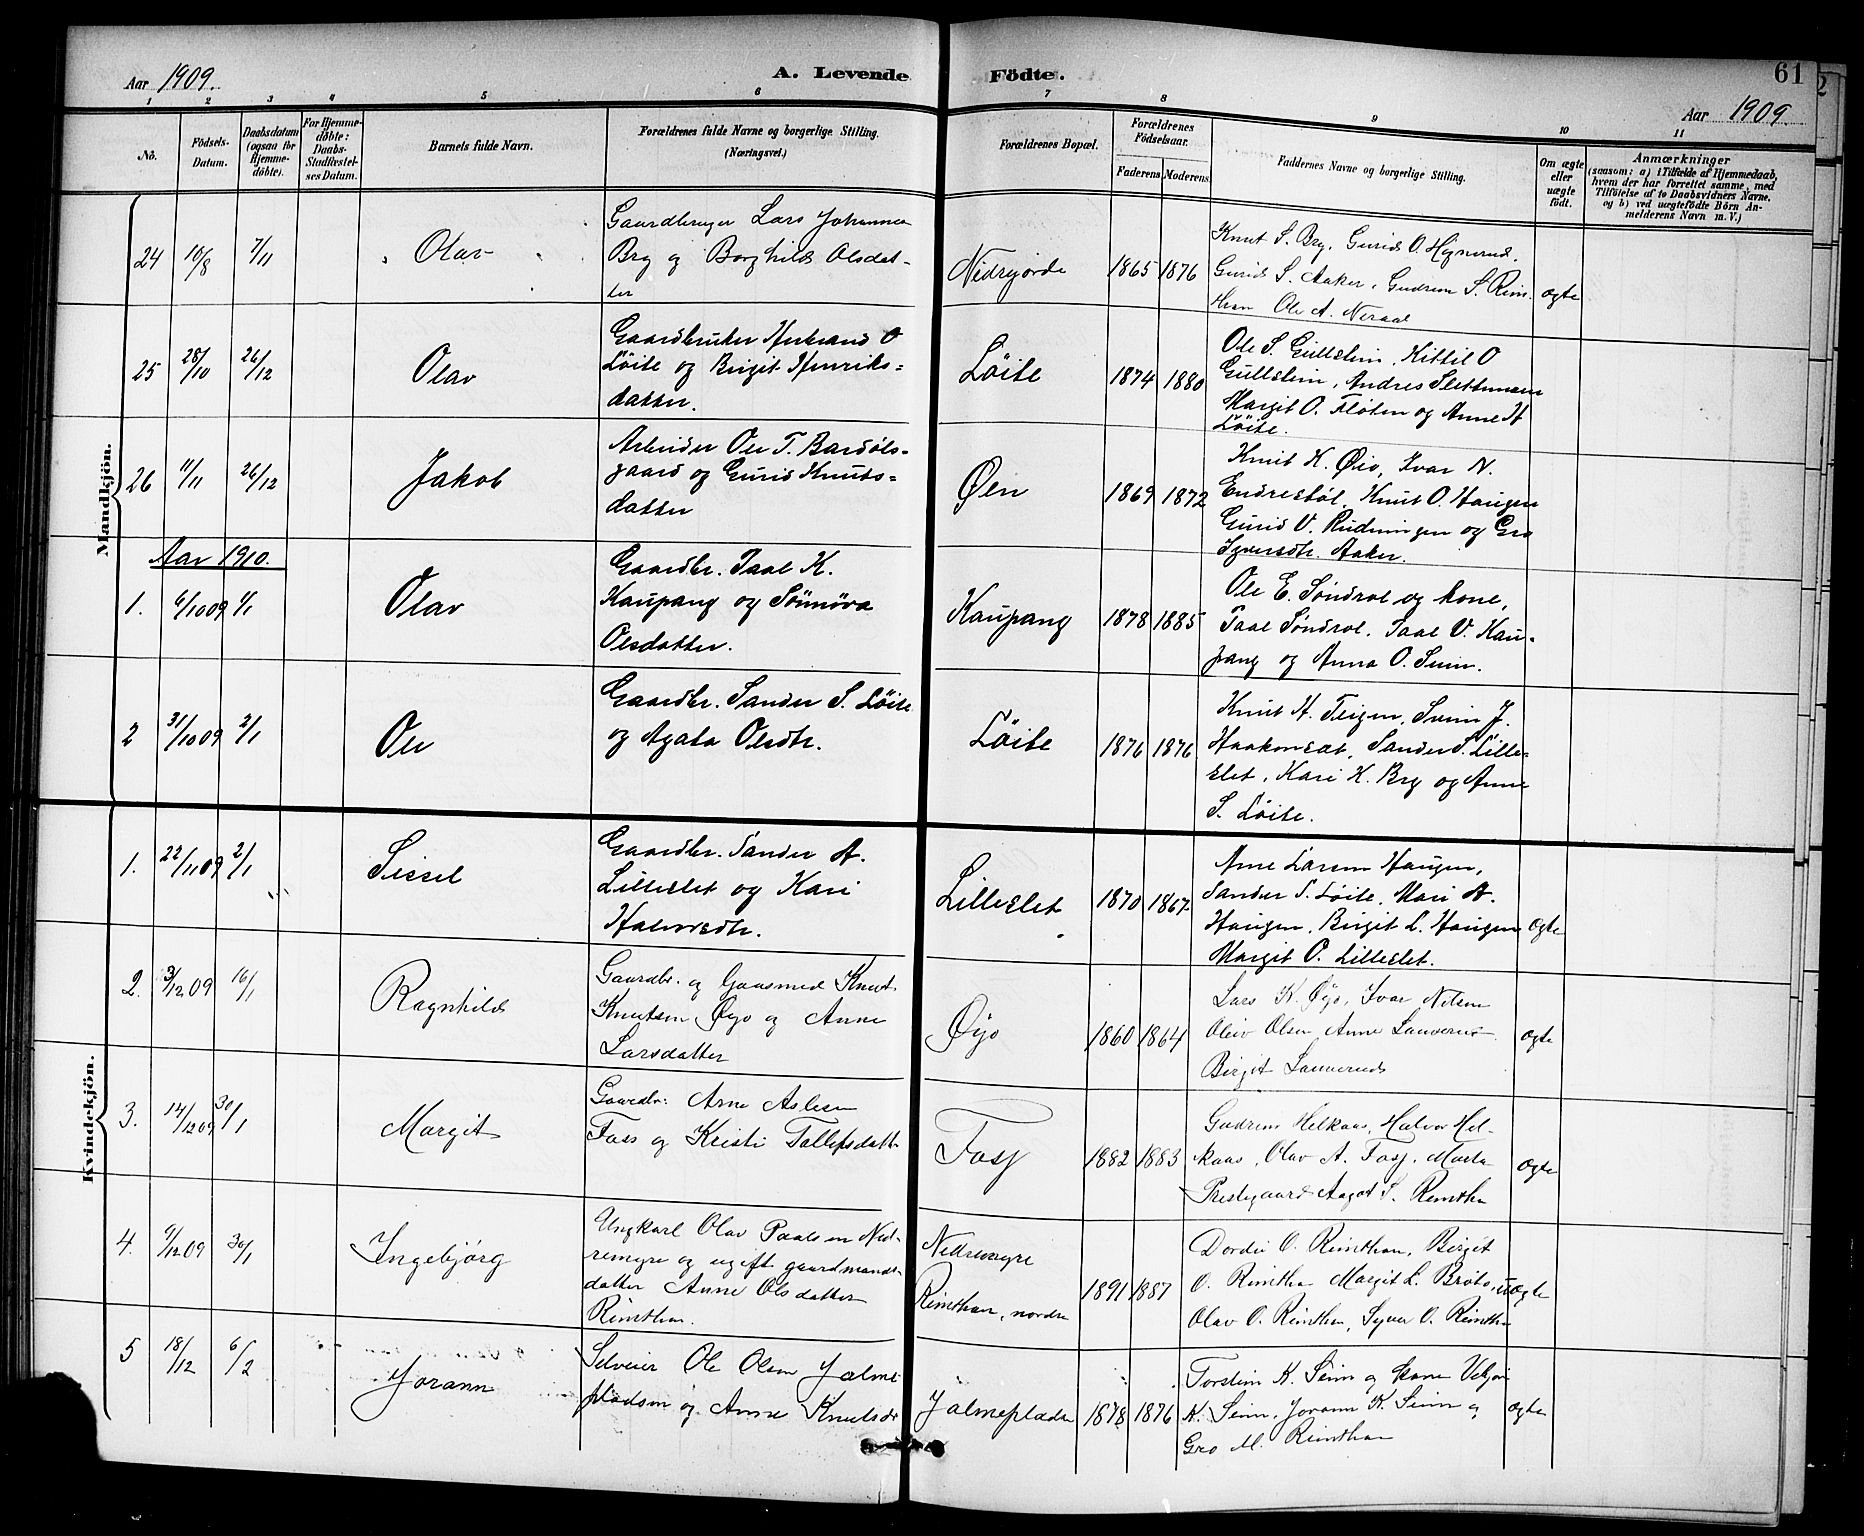 Aar 1909.
A. Levende Födte.
61
Aar 1909.
1 2 3 4 5 6 7 8 9 10 11
No.
Födsels-Datum.
Daabsdatum (ogsaa for Hjemme-döbte).
For Hjemme-döbte: Daabs-Stadfæstel-ses Datum.
Barnets fulde Navn.
Forældrenes fulde Navne og borgerlige Stilling.
(Næringsvei.)
Forældrenes Bopæl.
Forældrenes Födselsaar.
Faderens Moderens
Faddernes Navne og borgerlige Stilling.
Om ægte eller uægte födt.
Anmærkninger
(saasom: a) i Tilfælde af Hjemmedaab,
hvem der har forrettet samme, med
Tilföielse af to Daabsvidners Navne,
og b) ved uægtefödte Börn An-
melderens Navn m. V.)
Mandkjön.
24 10/8 7/11 Olav
Gaardbruger Lars Johannes
Bry og Borghild Olsdat-
ter
1865 1876
Knut S. Bry, Gurid O.
Gurid S. Aaker, Gudrun S. Rim-
Ole A.
ægte
25 28/10 26/12 Olav
Gaardbruker Herbrand O
Löite og Birgit Henriks-
datter.
Löite 1874 1880
Ole S. Gullstein, Kittil O
Gullstein, Andres Slettemoen
Margit O. Fløten og Anne H
Löite.
26 11/11 26/12 Jakob
Arbeider Ole T. Bardøls-
gaard og Gurid Knuts-
datter
Øen 1869 1872
Knut K. Øio, Ivar N.
Endrestøl, Knut O. Haugen
Gurid V. Rudningen og Gro
Syversdtr. Aaker.
Aar 1910.
1. 6/10 09 1/1 Olav
Gaardbr. Paal K.
Kaupang og Sönnöva
Olsdatter.
Kaupang 1878 1885
Ole E. Søndrol og kone,
Paal Søndrol, Paal V. Kau-
pang og Anna O. Sunn.
2 31/10 09 2/1 Ole
Gaardbr. Sander S. Löite
og Agata Olsdtr.
Löite 1876 1876
Knut H. Teigen, Svein J.
Haakonset, Sander S. Lille-
slet, Kari K. Bry og Anne
S. Löite.
Kvindekjön.
1. 22/11 09 2/1 Sissel
Gaardbr. Sander A.
Lilleslet og Kari
Halvorsdtr.
Lilleslet 1870 1867
Arne Larsen Haugen,
Sander S. Löite, Mari A.
Haugen, Birgit L. Haugen
Margit O. Lilleslet.
ægte
2. 3/12 09 16/1 Ragnhild
Gaardbr. og Knut
Knutsen Øyo og Anne
Larsdatter
Øyo 1860 1864
Lars K. Øyo, Ivar Nilsen
Oliv Olsen, Anne
Birgit
ægte
3. 14/12 09 30/1 Margit
Gaardbr. Arne Aslesen
Foss og Kristi Tollefsdatt
1882 1883
Gudrun Helkaas, Halvor Hel-
kaas, Olav A. Marta
Prestegaard Aagot S.
ægte
4. 9/12 09 30/1 Ingebjørg
Ungkarl Olav Paalsen Ned-
remyre og ugift gaardmands-
datter Anne Olsdatter
Rimthan.
Nedremyre
Rimthan, nordre
1891 1887
Dordei O. Rimthan, Birgit
O. Rimthan Margit L.
Olav O. Rimthan, Syver O. Rimthan
uægte
5 18/12 6/2 Jorann
Selveier Ole Olsen Jalme
pladsen og Anne Knutsdr
Jalmepladsen 1878 1876
Torstein K. Sunn og kone
K. Sunn, Jorann K. Sunn og
Gro M. Rimthan
ægte